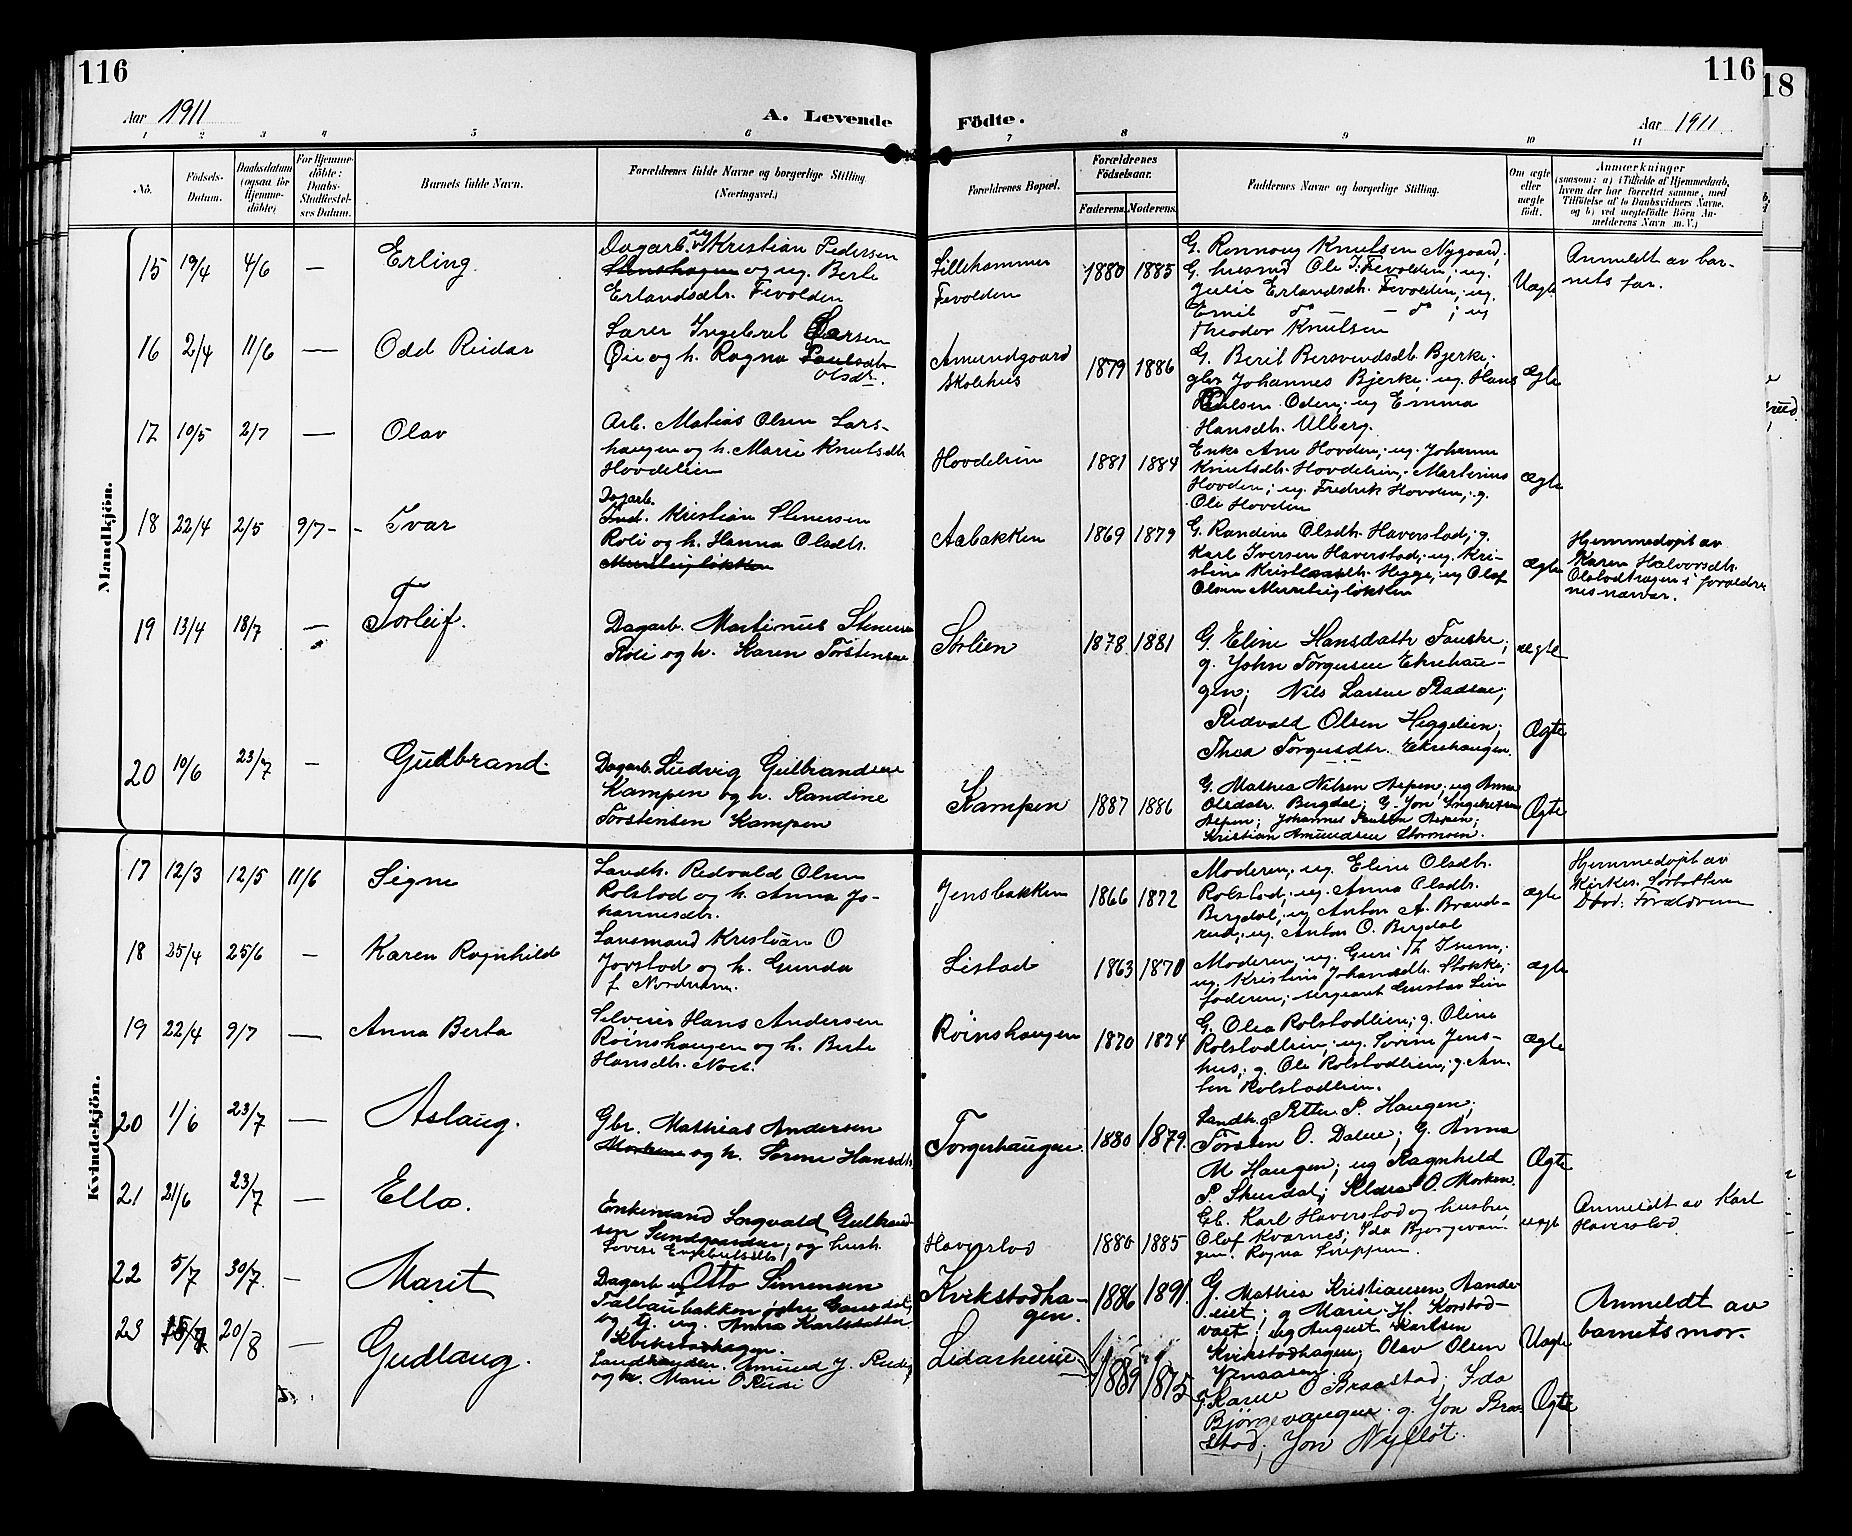 116
116
18
Aar 1911
A. Levende
Födte.
Aar 1911
1 2 3 4 5 6 7 8 9 10 11
No.
Födsels-Datum.
Daabsdatum (ogsaa for Hjemme-döbte)
For Hjemme-döbte: Daabs-Stadfæstel-ses Datum.
Barnets fulde Navn.
Forældrenes fulde Navne og borgerlige Stilling (Næringsvei.)
Forældrenes Bopæl.
Forældrenes Födselsaar.
Faderens. Moderens.
Faddernes Navne og borgerlige Stilling.
Om ægte eller uægte födt.
Anmærkninger
(saasom: a) i Tilfælde af Hjemmedaab,
hvem der har forrettet samme, med
Tilföielse af to Daabsvidners Navne,
og b) ved uægtefödte Börn An-
melderens Navn m. V.)
Mandkjön.
15 19/4 4/6 — Erling.
Dagarb. ug. Kristian Pedersen
og ug. Berte
Erlandsdtr. Fevolden
Lillehammer
Fevolden
1880 1885
G. Rønnaug Knutsen Nygaard;
G. husmd Ole I. Fevolden; ug.
Julie Erlandsdtr. Fevolden; ug.
Emil do — do; ug
Theodor Knutsen
Uægte
Anmeldt av bar-
nets far.
16 2/4 11/6 — Odd Reidar
Lærer Ingebret Larsen
Øie og h. Ragna Paulsdtr
Olsdtr.
Amundgaard
Skolehus
1879 1886
G. Berit Bersvendsdtr. Bjerke;
gbr Johannes Bjerke; ug. Hans
Paulsen Oden; ug Emma
Hansdtr. Ulberg.
ægte
17 10/5 2/7 — Olav
Arb. Matias Olsen Lars-
haugen og h. Marie Knutsdtr.
Hovdelien
Hovdelien
1881 1884
Enke Ane Hovden; ug. Johanne
Knutsdtr. Hovdelien; Martinus
Hovden; ug. Fredrik Hovden; g.
Ole Hovden
ægte
18 22/4 2/5 9/7 - - Ivar
Dagarb.
Ind. Kristian Stenersen
Roli og h. Hanna Olsdtr.
Aabakken
1869 1879
G. Randine Olsdtr. Haverstad; g.
Karl Iversen Haverstad; ug. Kri-
stine Kristiansdtr. Hegge; ug Olaf
Olsen
ægte
Hjemmedøpt av
Karen Halvorsdtr.
i foraldre
nes nærvær.
19 13/4 18/7 — Torleif.
Dagarb. Martinus Stenersen
Roli og h. Karen Torstensen
Sorlien
1878 1881
G. Eline Hansdattr Fauske;
g. John Torgersen Ekrehau-
gen; Nils Larsen Pladsen;
Redvald Olsen Heggelien;
Thea Torgersdtr. Ekrehaugen.
uægte
Ægte
20 10/6 23/7 — Gudbrand.
Dagarb. Ludvig Gulbrandsen
Kampen og h. Randine
Torstensen Kampen
Kampen
1887 1886
G. Mathea Nilsen Aspen; ug Anna
Olsdatr. Bergdal; G. Jon Ingebretsen
Aspen; Johannes Paulsen Aspen;
Kristian Amundsen Stormoen.
Ægte
Kvindekjön.
17 12/3 12/5 11/6 Signe
Landh. Redvald Olsen
Rolstad og h. Anna Jo-
hannesdtr.
Jensbakken
1866 1872
Moderen; ug. Eline Olsdtr.
Rolstad; ug. Anna Olsdtr.
Bergdal; ug Anton A. Brand-
rud; ug. Anton O. Bergdal
ægte
Hjemmedøpt av
Kirkes.
Døvd: Forældrene
18 25/4 25/6 — Karen Ragnhild
Lensmand Kristian O
Jorstad og h. Gunda
f. Nordrum.
Listad
1863 1870
Moderen; ug. Guri Th. Isum;
ug. Kristine Johansdtr. Stokke;
faderen; sergeant Gustav Lien
ægte
19 22/4 9/7 — Anna Berta
Selveier Hans Andersen
Rønshaugen og h. Berte
Hansdtr. Moe.
Rønshaugen
1870 1874
G. Olea Rolstadlien; g. Oline
Rolstadlien; ug. Sørine Jens-
hus; g. Ole Rolstadlien; g. An-
ton Rolstadlien.
ægte
20 1/6 23/7 — Aslaug.
Gbr. Mathias Andersen
og h. Sørene Hansdtr.
Torgerhaugen.
1880 1879.
Landh. g. Petter P. Haugen;
Torsten O. Dalene; g. Anna
M Haugen; ug Ragnhild
P. Skurdal; Klara O. Morken.
Ægte
21 21/6 23/7 — Ella.
Enkemand Sagvald Gulbrand-
sen og hush.
Lovise Engebretsdtr.
Haverstad
1880 1885
Gb. Karl Haverstad og hustru
Olaf Kvarnes; Ida Bjørgevau-
gen. Ragna
uægte
Anmeldt av Karl
Haverstad
22 5/7 30/7. — Marit
Dagarb ug Otto Simensen
Taltaubakken østre Gausdal,
og tj. ug. Anna Karlsdatter
Kvikstadhagen.
Kvikstadha-
gen.
1886 1891.
G. Mathea Kristiansen Aande-
eiet; g Marie H. Korstad-
vaet; ug August Karlsen
Kvikstadhagen; Olav Olsen
Uægte
Anmeldt av
barnets mor.
23 20/8 — Gudlaug.
Landhandler. Amund J. Rudi
og h. Marie O Rudi
Lidarheim
1889 1875
G. Karen O Braastad; Ida
Bjørgevaugen. g. Jon Braa-
stad; Jon Nyfløt.
Ægte